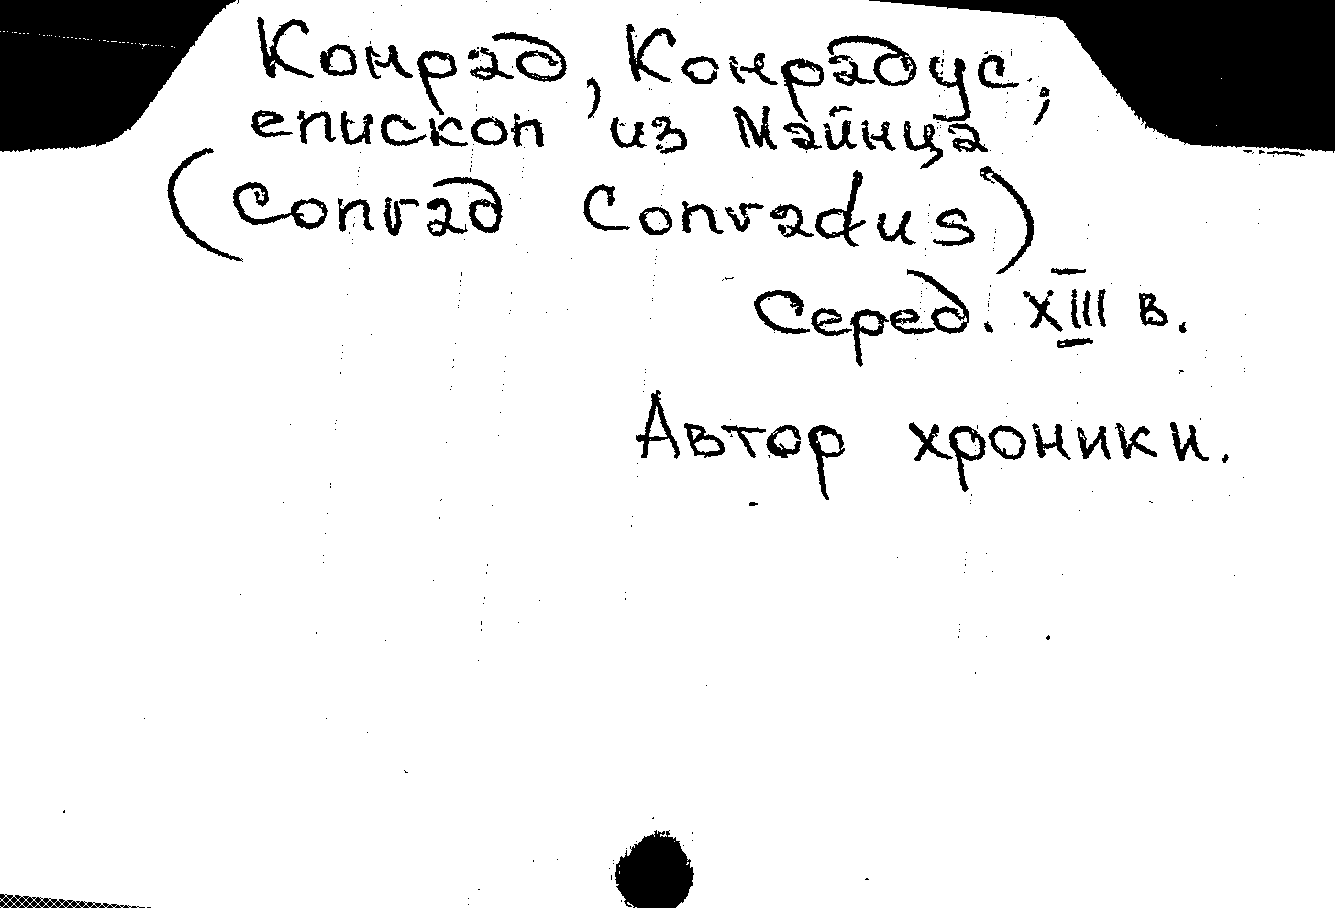 Конрад, Конрадус,
епископ из Майнца
(Conrad Conradus)
Серед. XIII в.
Автор хроники.